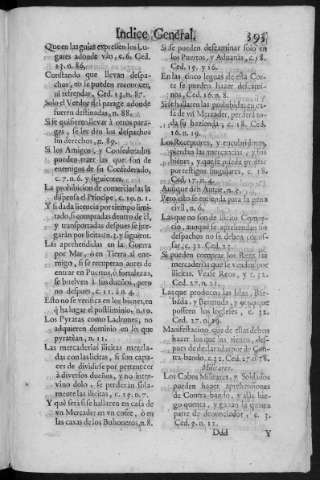 Indice General. 393
Que en las guias expressen los Lu-
gares adonde vàn, c. 6. Ced.
23. n. 86.
Constando que llevan despa-
chos, no se pueden reconocer,
ni refrendar, Ced. 23. n. 87.
Solo el Veedor del parage adonde
fueren destinadas, n. 88.
Si se quisieren llevar à otros para-
ges, se les dèn los despachos
sin derechos, n. 89.
Si los Amigos, y Confederados
pueden traer las que son de
enemigos de su Confederado,
c. 7. n. 6. y siguientes.
La prohibicion de comerciarlas la
dispensa el Principe, c. 19. n. 1.
Y si dada licencia por tiempo limi-
tado, si compradas dentro de èl,
y transportadas despues se juz-
garàn por licitas, n. 2. y siguient.
Las aprehendidas en la Guerra
por Mar, ò en Tierra al ene-
migo, si se recuperan antes de
entrar en Puertos, ò fortalezas,
se buelven à sus dueños, pero
no despues, c. 11. n. 4.
Esto no se verifica en los bienes, en
q ha lugar el postliminio, n. 10.
Los Pyratas como Ladrones, no
adquieren dominio en lo que
pyratean, n. 11.
Las mercaderias ilicitas mezcla-
das con las licitas, si son capa-
ces de dividirse por pertenecer
à diversos dueños, y no inter-
vino dolo, se perderàn sola-
mente las ilicitas, c. 15. n. 7.
Y què serà si se hallaren en casa de
un Mercader en un cofre, ò en
las caxas de los Buhoneros, n. 8.
Si se pueden descaminar solo en
los Puertos, y Aduanas, c. 18.
Ced. 15. y 16.
En las cinco leguas de esta Cor-
te se pueden hazer descami-
nos, Ced. 16. n. 8.
Si se hallaren las prohibidas en ca-
sa de un Mercader, perderà to-
da su hazienda, c. 18. Ced.
16. n. 19.
Los Receptores, y encubridores,
pierdan las mercancias, y sus
por testigos singulares, c. 18.
Ced. 17. n. 4.
Aunque den Autor, n. 5.
Pero esto se entienda para la
civil, n. 6.
Las que no son de ilicito Comer-
cio, aunque se aprehendan sin
despachos no se deben confis-
car, c. 32. Ced. 23.
Si pueden comprar los Reos las
mercaderias que se venden por
ilicitas. Vease Reos, y c. 32.
Ced. 27. n. 21.
Las que producen las Islas, Bar-
bada, y Bermuda, y que
posseen los Ingleses, c. 32.
Ced. 27. n. 29.
Manifestacion que de ellas deben
hazer los que las tienen, des-
pues de declaradas por de Con-
tra-bando, c. 32. Ced. 27. n. 78.
Militares.
Los Cabos Militares, y Soldados
pueden hazer aprehensiones
de Contra-bando, y
c. 3.
Ced. 9. n. 11.
Ddd Y